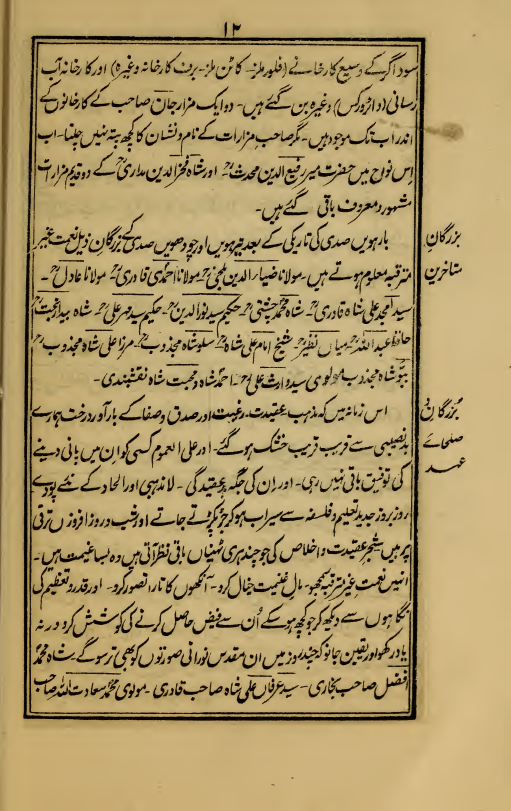 ۱۲
سوداگر کے وسیع کارخانے (فلور ملز۔ کاٹن ملز۔ برف کارخانہ وغیرہ) اور کارخانہ آب
رسانی (واٹر ورکس) وغیرہ بن گئے ہیں۔ دو ایک مزار جان صاحب کے کارخانوں کے
اندر اب تک موجود ہیں۔ مگر صاحب مزارات کے نام و نشان کا کچھ پتہ نہیں چلتا۔ اب
اس نواح میں حضرت میر رفیع الدین محدثؒ۔ اور شاہ فخر الدین مداریؒ کے دو قدیم مزارات
مشہور و معروف باقی رہ گئے ہیں۔
بزرگانِ
متاخرین
بارہویں صدی کی تاریکی کے بعد تیرہویں اور چودھویں صدی کے بزرگان ذیل نعمت غیر
مترقبہ معلوم ہوتے ہیں۔ مولانا ضیاء الدین بلخیؒ۔ مولانا احمدی قادریؒ۔ مولانا عادلؒ۔
سید امجد علی شاہ قادریؒ۔ شاہ محمد چشتیؒ۔ حکیم سید نور الدینؒ۔ حکیم سید مہر علیؒ۔ شاہ بیدار بختؒ۔
حافظ عبد اللہؒ۔ میاں نظیرؒ۔ شیخ امام علی شاہؒ۔ سلو شاہ مجذوبؒ۔ مرزا علی شاہ مجذوبؒ۔
ببو شاہ مجذوب۔ مولوی سید وارث علیؒ۔ احمد شاہ و محبت شاہ نقشبندی۔
بزرگان و
صلحائے
عہد
اس زمانہ میں کہ مذہب۔ عقیدت۔ رغبت اور صدق و صفا کے بار آور درخت ہمارے
بدنصیبی سے قریب قریب خشک ہو گئے۔ اور علی العموم کسی کو ان میں پانی دینے
کی توفیق باقی نہیں رہی۔ اور ان کی جگہ بدعقیدگی۔ لا مذہبی اور الحاد کے نئے پودے
روز بروز جدید تعلیم و فلسفہ سے سیراب ہو کر جڑ پکڑتے جاتے اور شب و روز افزوں ترقی
پر ہیں شجر عقیدت و اخلاص کی جو چند ہری ٹہنیاں باقی نظر آتی ہیں وہ بسا غنیمت ہیں۔
انہیں نعمت غیر مترقبہ سمجھو۔ مال غنیمت خیال کرو۔ آنکھوں کا تارا تصور کرو۔ اور قدر و تعظیم کی
نگاہوں سے دیکھ کر جو کچھ ہو سکے اُن سے فیض حاصل کرنے کی کوشش کرو ورنہ
یاد رکھو اور یقین جانو کہ چند روز میں ان مقدس نورانی صورتوں کو بھی ترسو گے۔ شاہ محمد
افضل صاحب بخاری۔ سید عرفان علی شاہ صاحب قادری۔ مولوی محمد سعادت اللہ صاحب